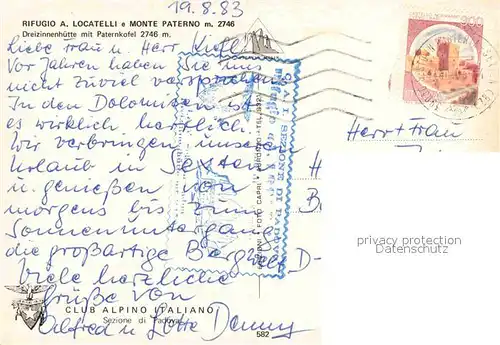 19.8.83
RIFUGIO A. LOCATELLI e MONTE PATERNO m. 2746
Dreizinnenhütte mit Paternkofel 2746 m.
Liebe Frau u. Herr
Vor Jahren haben Sie uns
nicht zuviel versprochen
In den Dolomiten ist
es wirklich herrlich.
Wir verbringen unseren
Urlaub in Sexten
u. genießen von
morgens bis zum
Sonnenuntergang
die großartige Bergwelt
Viele herzliche
Grüße von
u. Lotte
CLUB ALPINO ITALIANO
Sezione di Padova
582
C.A.I. SEZIONE DI PADOVA
FOTO CAPRI
300
Herr + Frau
H
B
D-
privacy protection
Datenschutz